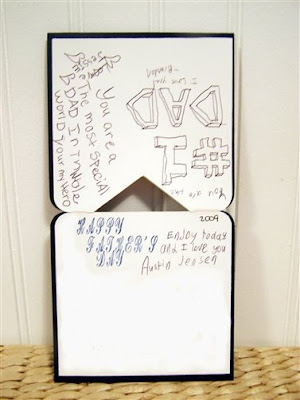 You are a
The most special
DAD In
World your my Hero
You are the
#1
DAD
I love you
-Brandon
2009
HAPPY
FATHER'S
DAY
Enjoy today
and I love you
Austin Jensen